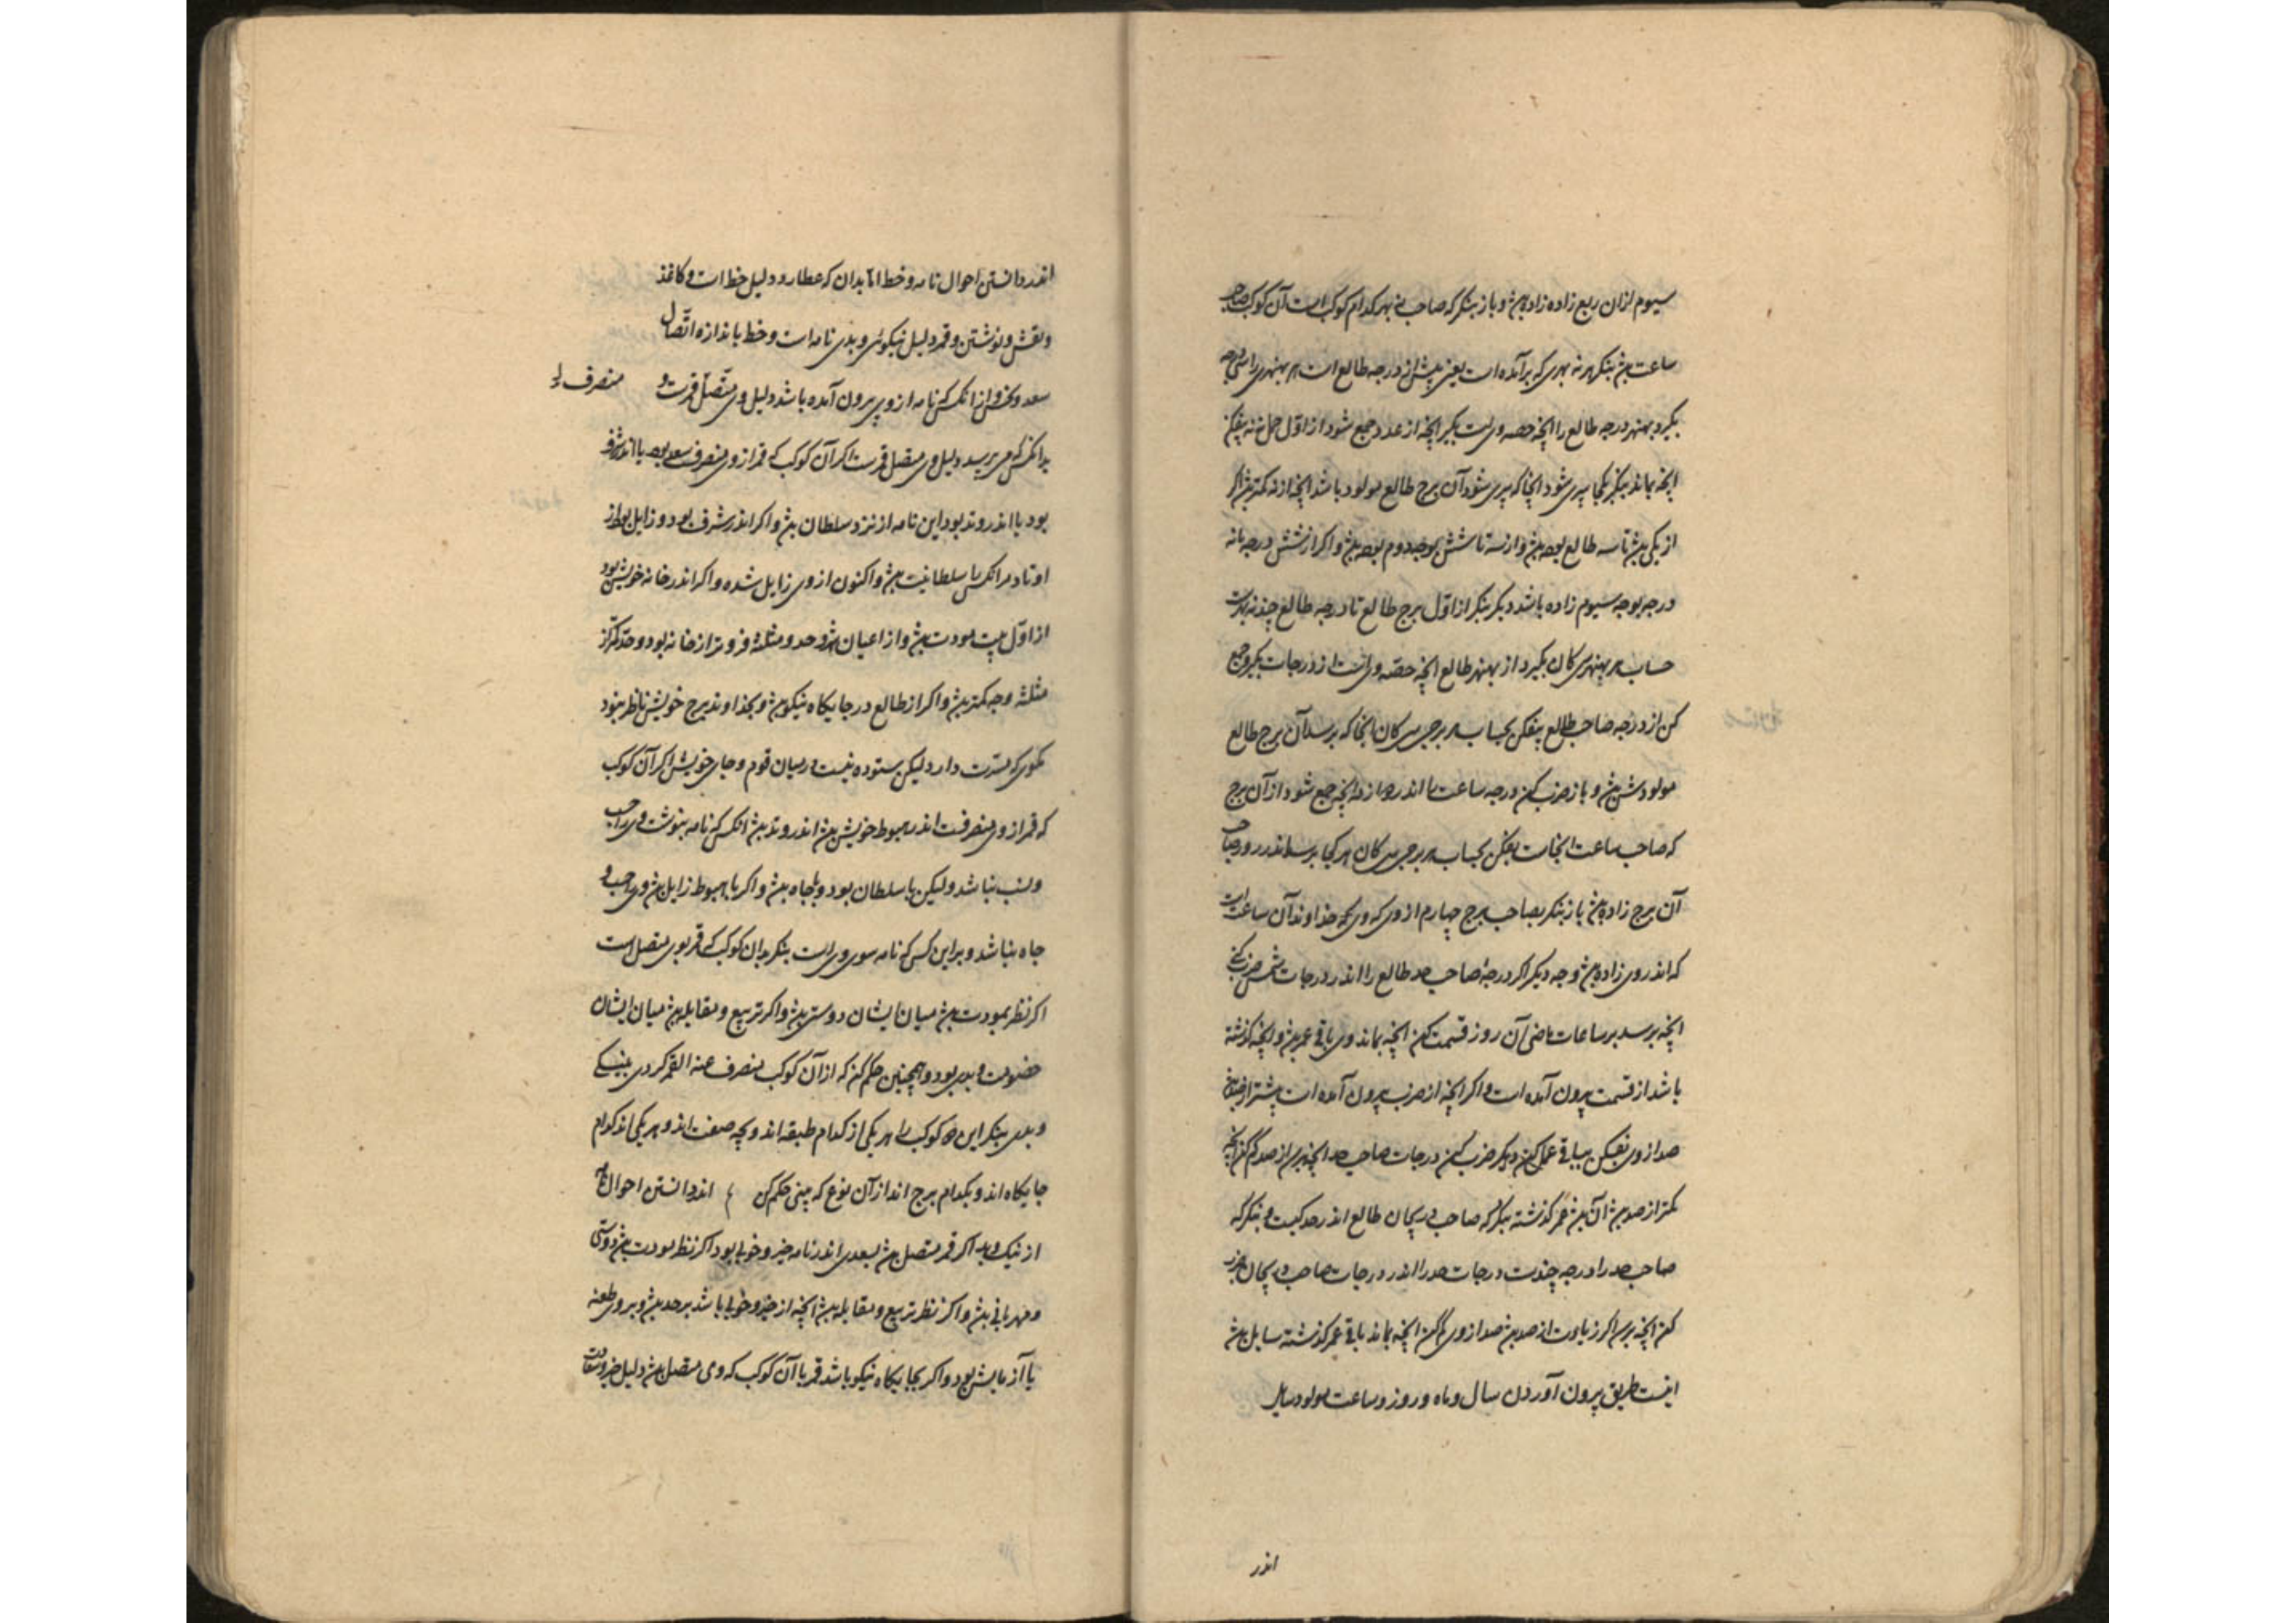 سیوم ازان ربع زاده زاده بش و باز بنکر که صاحب نه بهر کدام کوکب است آن کوکب صاحب
ساعت بش بنکر نه بهری که برآمده است یعنی پیش از درجه طالع است هر نه بهری را
بکیرد بهنه درجه طالع را انچه حصه وی است بکیر انچه از عدد جمع شود از اول حمل نه نه بیفکن
انچه بماند بنکر بکجا سپری شود انجا که سپری شود آن برج طالع مولود باشد انچه از نه کمتر بش اکر
از یکی بش تا سه طالع بوجه بش و از سه تا شش بوجه دوم بوجه بش و اکر از شش درجه تا نه
درجه بوجه سیوم زاده باشد دیکر بنکر از اول برج طالع تا درجه طالع چند نه بهرست
حساب هر نه بهری کان بکیرد از بهنه طالع انچه حصه وی است از درجات بکیر و جمع
کن از درجه صاحب طالع بیفکن بحساب هر برجی سی کان انجا که برسد آن برج طالع
مولودش بش و باز ضرب کن درجه ساعت را اندر دوازده انچه جمع شود از آن برج
که صاحب ساعت انجاست بفکن بحساب هر برجی سی کان هر کجا برسد اندر روز صاحب
آن برج زاده بش باز بنکر بصاحب برج چهارم از وی که وی بچه خداوند آن ساعت است
که اندر وی زاده بش وجه دیکر اکر درجهٔ صاحب حد طالع را اندر درجات شمس ضرب کنی
انچه برسد بر ساعات ماضی آن روز قسمت کن انچه بماند وی باقی عمر بش و انچه کذشته
باشد از قسمت بیرون آمده است و اکر انچه از ضرب بیرون آمده است بیشتر از صد بش
صد از وی بفیکن بباقی عمل کن دیکر ضرب کن درجات صاحب حد انچه برسد از صد کم کن انچه
کمتر از صد بش آن بش عمر کذشته بنکر که صاحب دریجان طالع اندر حد کیست و بنکر که
صاحب حد را درجه چندست درجات حد را اندر درجات صاحب دریجان ضرب
کن انچه برسد اکر زیادت از صد بش صد از وی کم کن انچه بماند باقی عمر کذشته سایل بش
اینست طریق بیرون آوردن سال و ماه و روز و ساعت مولود سایل
اندر
اندر دانستن احوال نامه و خط اما بدان که عطارد دلیل خط است و کاغذ
و نقش و نوشتن و قمر دلیل نیکوئی و بدی نامه است و خط باندازه اتّصال
سعد و نحس و از انکس که نامه از وی بیرون آمده باشد دلیل وی متّصل قمرست و
منصرف
بدانکس که می برسد دلیل وی متصل قمرست اکر آن کوکب که قمر از وی منصرفست سعد بود یا اندر شرف
بود یا اندر وتد بود این نامه از نزد سلطان بش و اکر اندر شرف بود و زایل بود از
اوتاد مر انکس را سلطانیت بش و اکنون از وی زایل شده و اکر اندر خانه خویش بود
از اوّل بیت مودت بش و از اعیان بش و حد و مثلثه فروتر از خانه بود و حد کمتر از
مثلثه وجه کمتر بش و اکر از طالع در جایکاه نیکو بش و بخداوند برج خویش ناظر نبود
بکوی که قدرت دارد لیکن ستوده نیست در میان قوم و جای خویش اکر آن کوکب
که قمر از وی منصرفست اندر هبوط خویش بش اندر وتد بش انکس که نامه بنوشت وی را حسب
و نسب نباشد ولیکن با سلطان بود و با جاه بش و اکر با هبوط زایل بش وی را حسب و
جاه نباشد و براین کس که نامه سوی وی است بنکر بدان کوکب که قمر بوی متصل است
اکر نظر بمودت بش میان ایشان دوستی بش و اکر تربیع و مقابله بش میان ایشان
خصومت و بدی بود و همچنین حکم کن که از آن کوکب منصرف عنه القمر کردی بنیکی
و بدی بنکر این دو کوکب را هر یکی از کدام طبقه اند و بچه صفت اند و هر یکی اندر کدام
جایکاه اند و بکدام برج اند از آن نوع که بینی حکم کن اندر دانستن احوال نامه
از نیک و بد اکر قمر متصل بش بسعدی اندر نامه خیر و خوبی بود اکر نظر مودت بش دوستی
و مهربانی بش و اکر نظر تربیع و مقابله بش انچه از خیر و خوبی باشد بر حد بش و بر وی طعنه
یا آزمایش بود و اکر بجایکاه نیکو باشد قمر یا آن کوکب که وی متصل بش دلیل خیر و سعادت